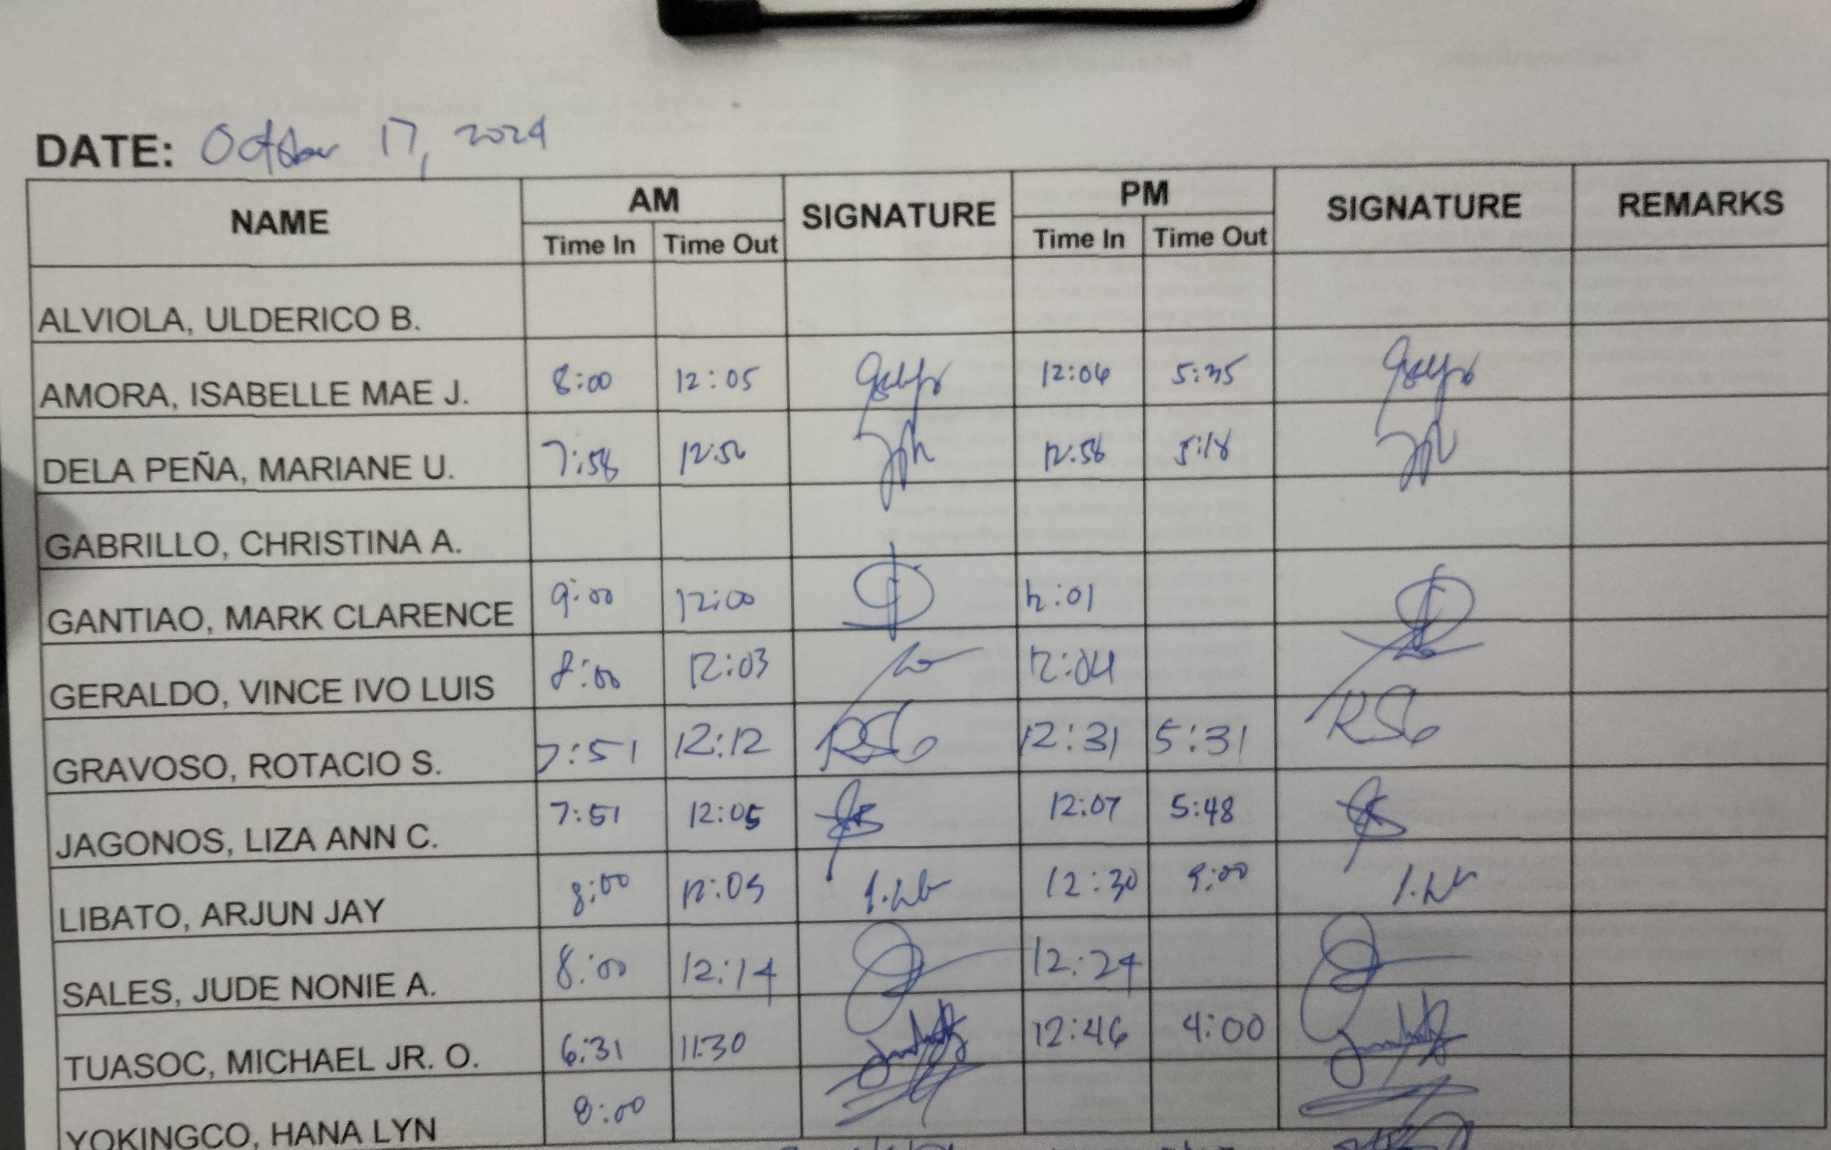 DATE: October 17, 2024
NAME AM SIGNATURE PM SIGNATURE REMARKS
Time In Time Out Time In Time Out
ALVIOLA, ULDERICO B.
AMORA, ISABELLE MAE J. 8:00 12:05 12:06 5:35
DELA PEÑA, MARIANE U. 7:58 12:56 12:58 5:18
GABRILLO, CHRISTINA A.
GANTIAO, MARK CLARENCE 9:00 12:00 12:01
GERALDO, VINCE IVO LUIS 8:00 12:03 12:04
GRAVOSO, ROTACIO S. 7:51 12:12 RSG 12:31 5:31 RSG
JAGONOS, LIZA ANN C. 7:51 12:05 12:07 5:48
LIBATO, ARJUN JAY 8:00 12:05 12:30 9:00
SALES, JUDE NONIE A. 8:00 12:14 12:24
TUASOC, MICHAEL JR. O. 6:31 11:30 12:46 4:00
YOKINGCO, HANA LYN 8:00